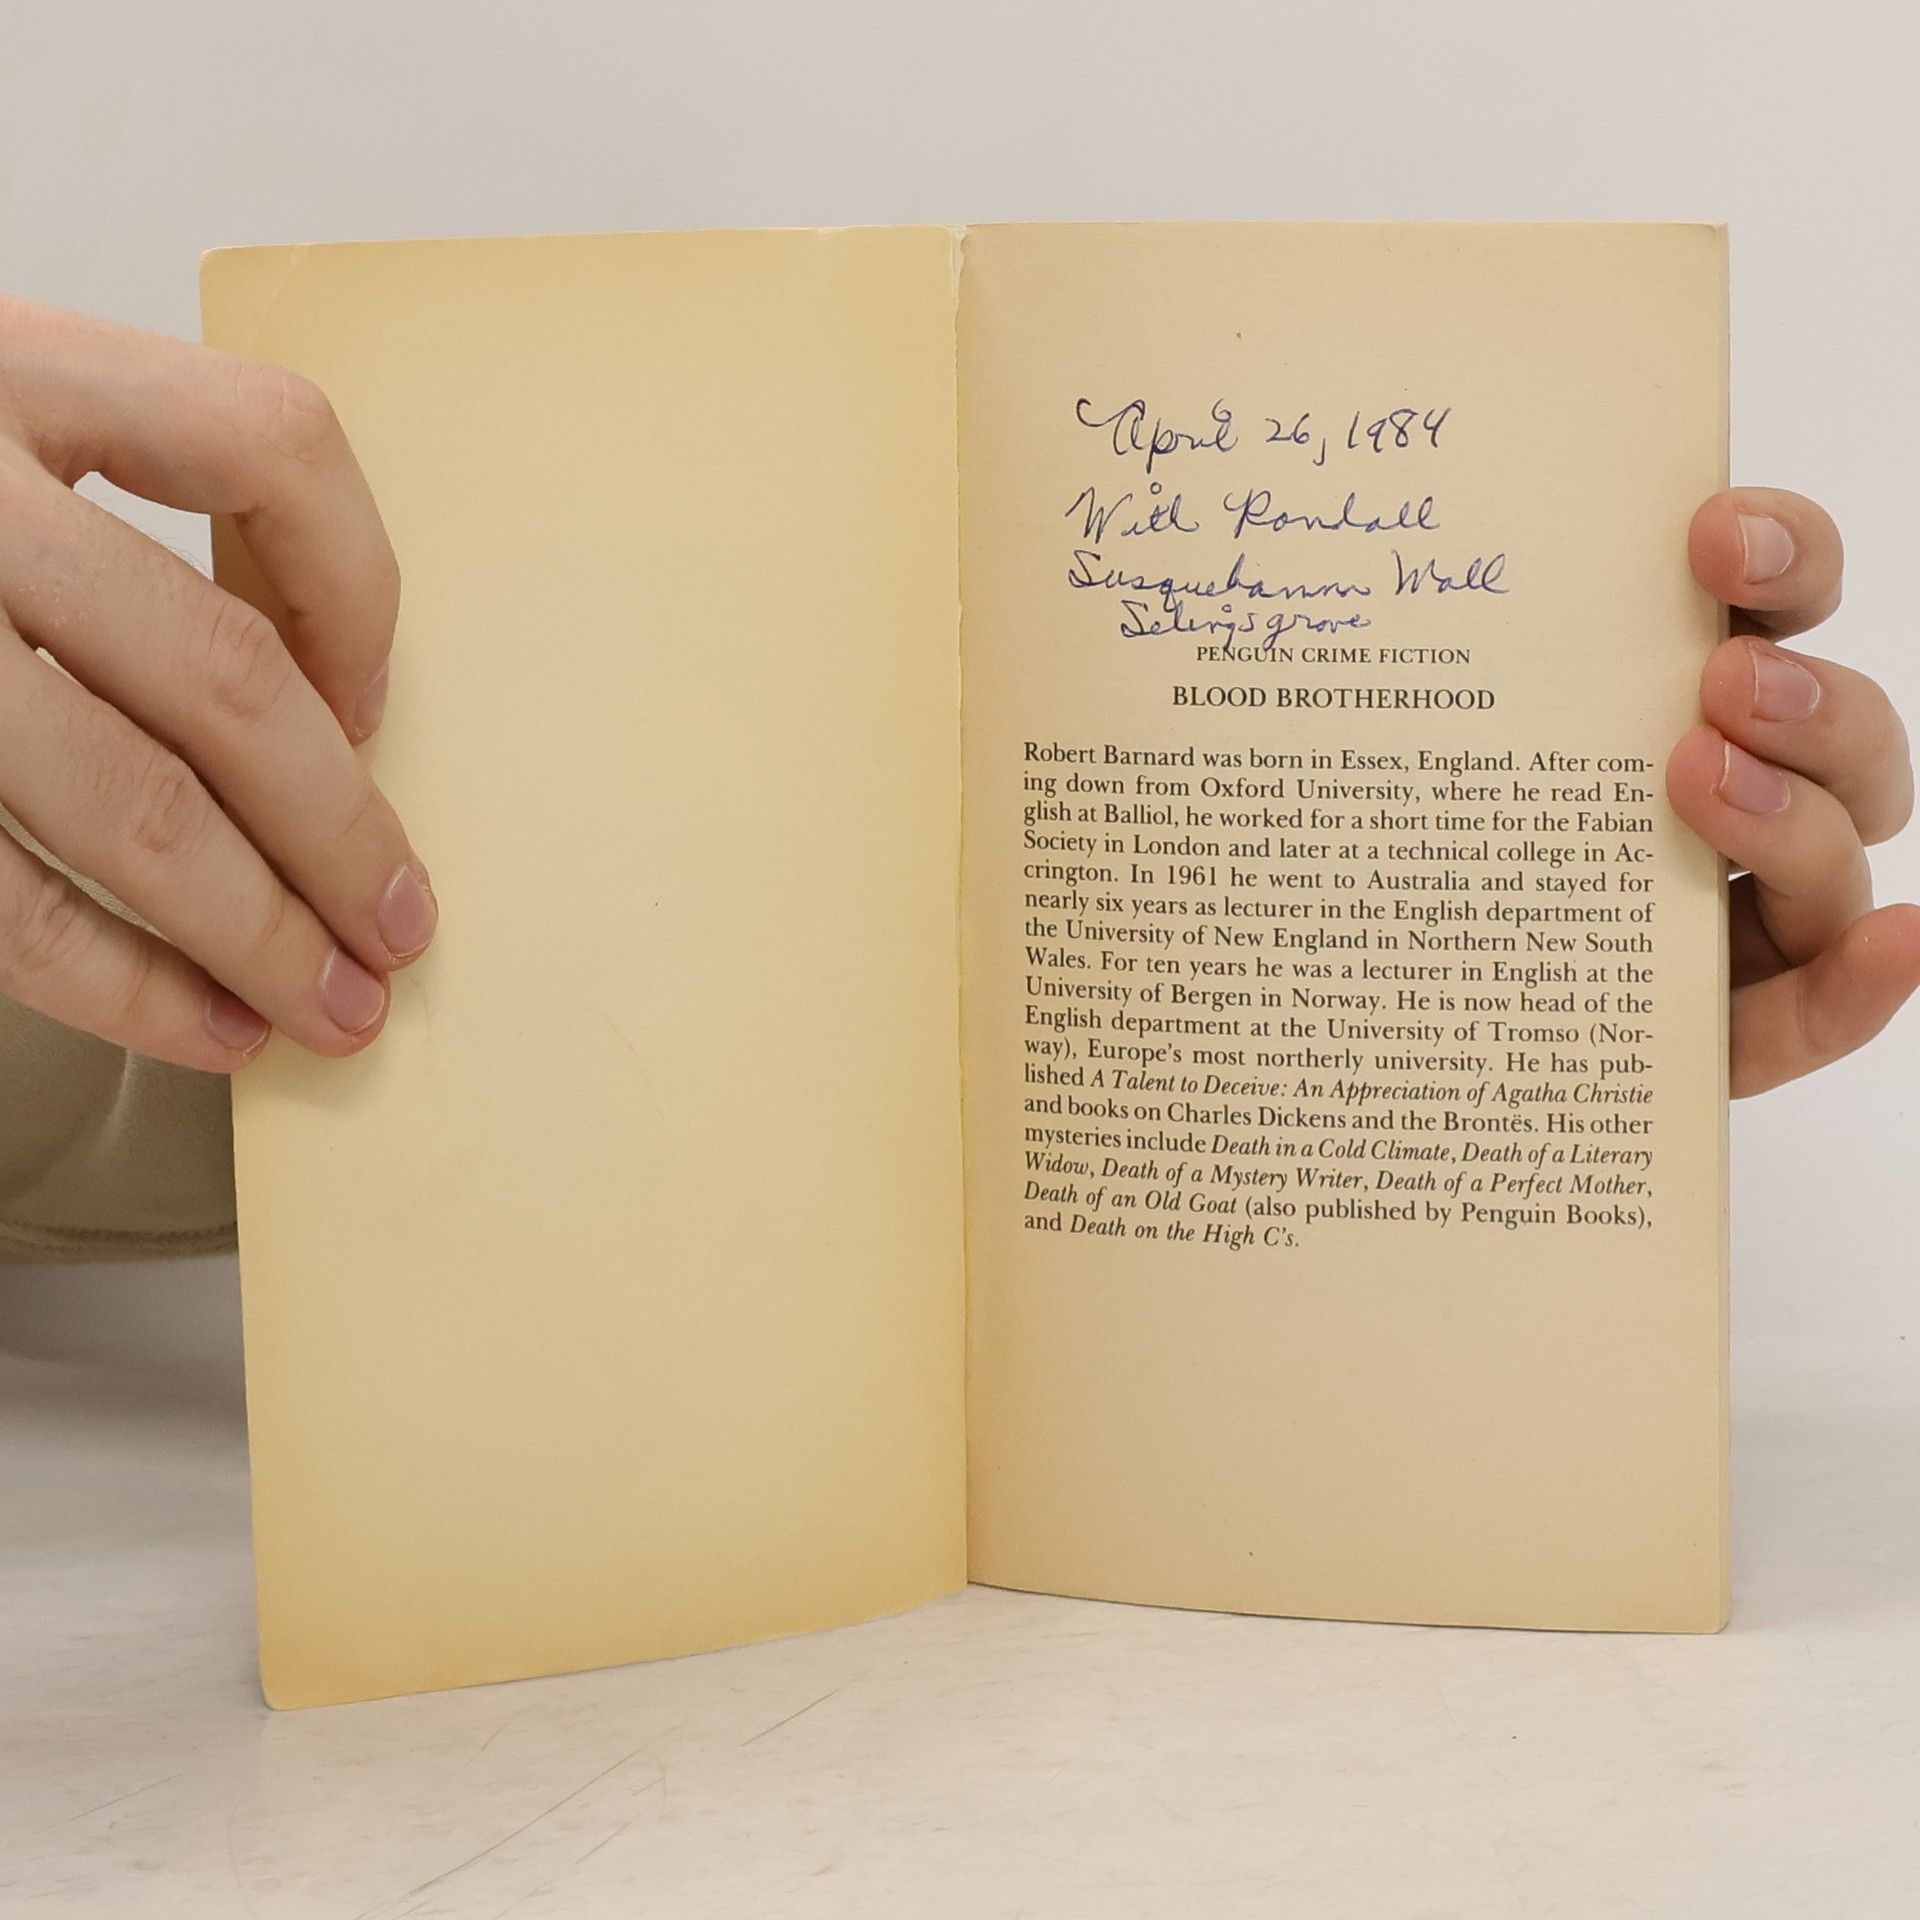 April 26, 1984
With Randall
Susquehanna Mall
Selinsgrove
PENGUIN CRIME FICTION
BLOOD BROTHERHOOD
Robert Barnard was born in Essex, England. After com-
ing down from Oxford University, where he read En-
glish at Balliol, he worked for a short time for the Fabian
Society in London and later at a technical college in Ac-
crington. In 1961 he went to Australia and stayed for
nearly six years as lecturer in the English department of
the University of New England in Northern New South
Wales. For ten years he was a lecturer in English at the
University of Bergen in Norway. He is now head of the
English department at the University of Tromso (Nor-
way), Europe's most northerly university. He has pub-
lished A Talent to Deceive: An Appreciation of Agatha Christie
and books on Charles Dickens and the Brontës. His other
mysteries include Death in a Cold Climate, Death of a Literary
Widow, Death of a Mystery Writer, Death of a Perfect Mother,
Death of an Old Goat (also published by Penguin Books),
and Death on the High C's.